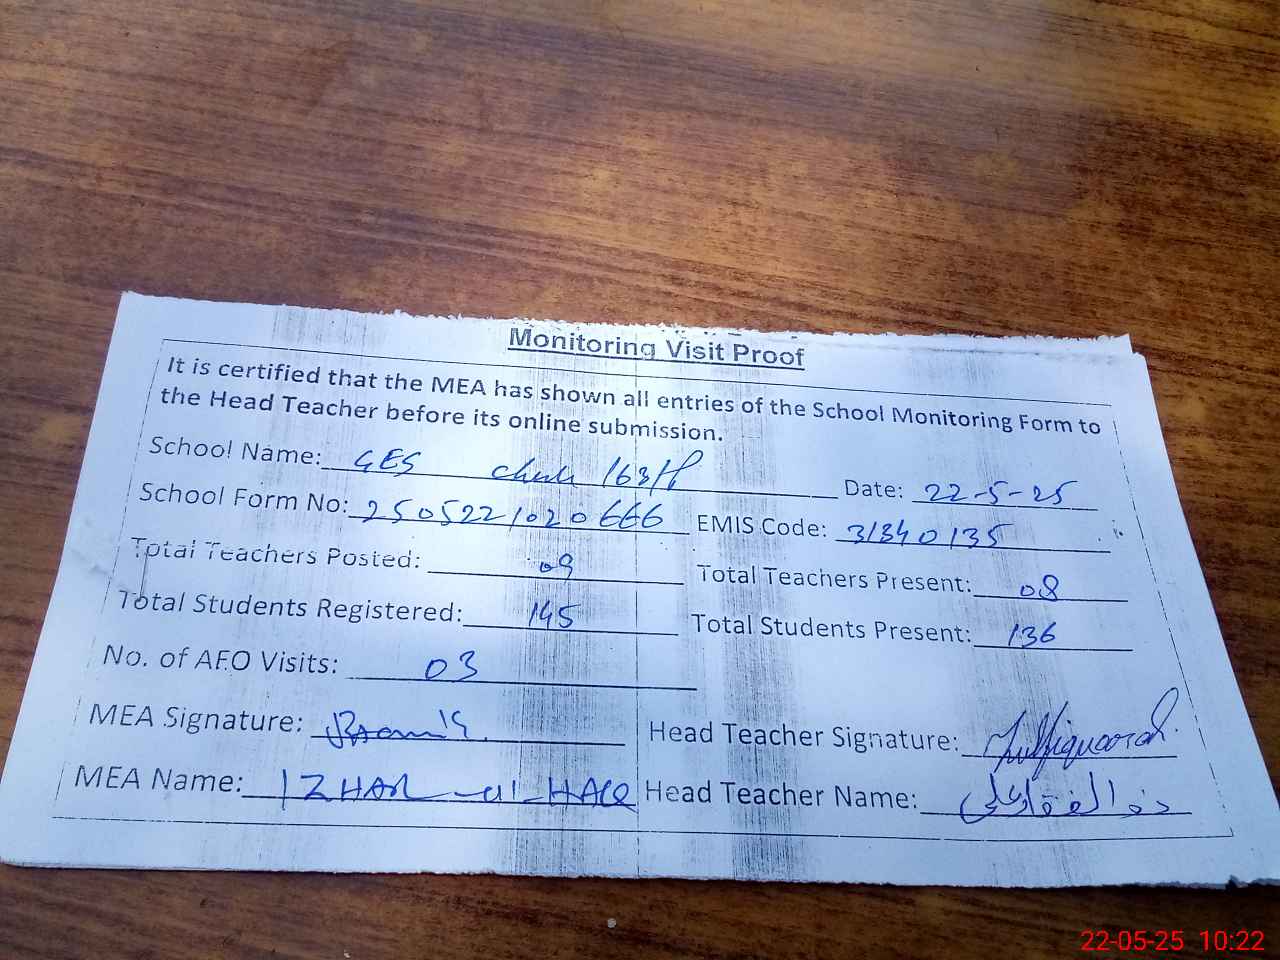 Monitoring Visit Proof
It is certified that the MEA has shown all entries of the School Monitoring Form to
the Head Teacher before its online submission.
School Name: GES Chak 163/P Date: 22-5-25
School Form No: 2505221020666 EMIS Code: 31340135
Total Teachers Posted: 09 Total Teachers Present: 08
Total Students Registered: 145 Total Students Present: 136
No. of AEO Visits: 03
MEA Signature: Head Teacher Signature:
MEA Name: IZHAR-ul-HAQ Head Teacher Name: ذوالفقار علی
22-05-25 10:22